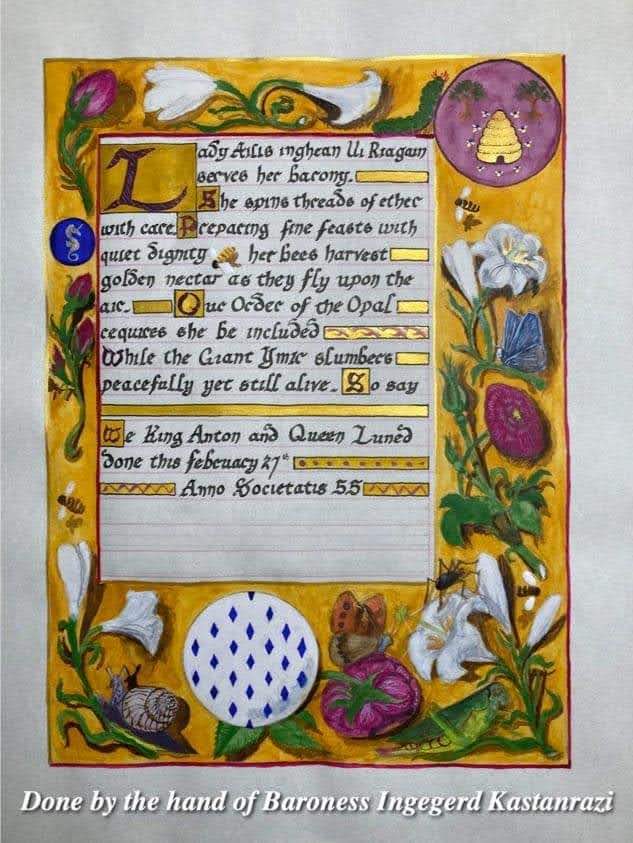 Lady Ailis inghean Ui Riagain
serves her barony.
She spins threads of ether
with care. Preparing fine feasts with
quiet dignity her bees harvest
golden nectar as they fly upon the
air. Our Order of the Opal
requires she be included
While the Giant Ymir slumbers
peacefully yet still alive. So say
We King Anton and Queen Luned
done this february 27th
Anno Societatis 55
Done by the hand of Baroness Ingegerd Kastanrazi